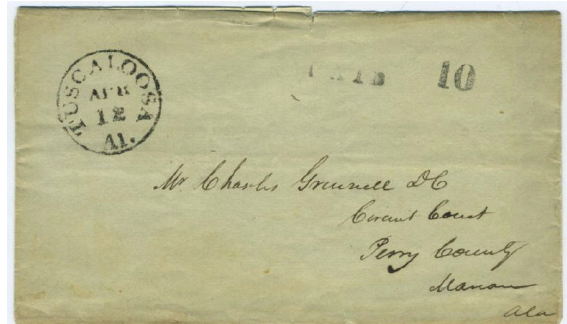 TUSCALOOSA
APR
12
Al.
PAID 10
Mr Charles
Circuit Court
Perry County
Marion
Ala